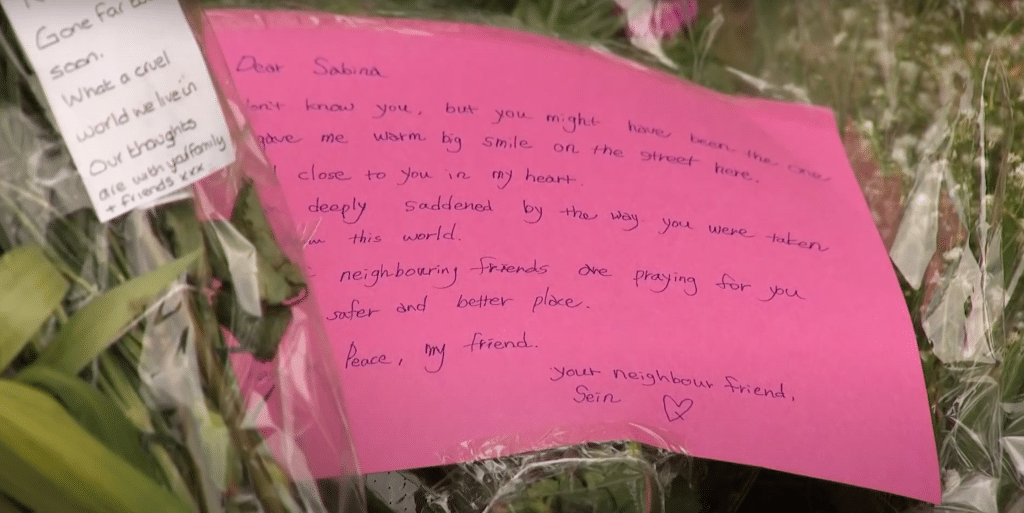 Gone far
soon.
What a cruel
world we live in
Our thoughts
are with your family
+ friends xxx
Dear Sabina
know you, but you might have been the one
gave me warm big smile on the street here.
close to you in my heart.
deeply saddened by the way you were taken
this world.
neighbouring friends are praying for you
safer and better place.
Peace, my friend.
your neighbour friend,
Sein ♡